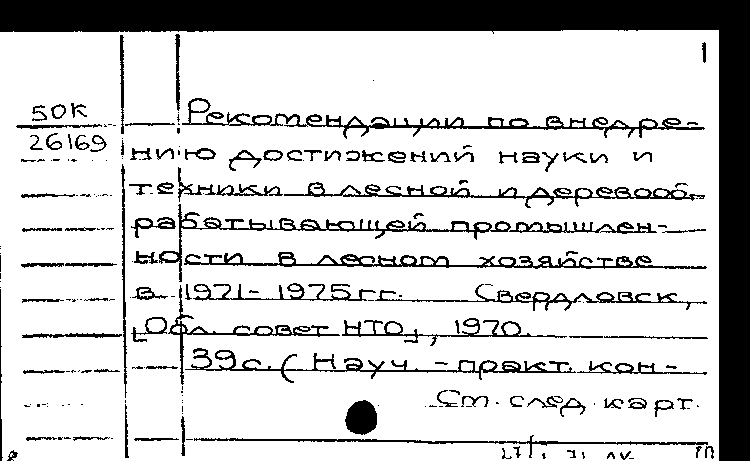 1
50К
26169
Рекомендации по внедре-
нию достижений науки и
техники в лесной и деревооб-
рабатывающей промышлен-
ности в лесном хозяйстве
в 1971-1975гг. Свердловск,
[Обл. совет НТО], 1970.
39с. (Науч. -практ. кон-
См. след. карт.